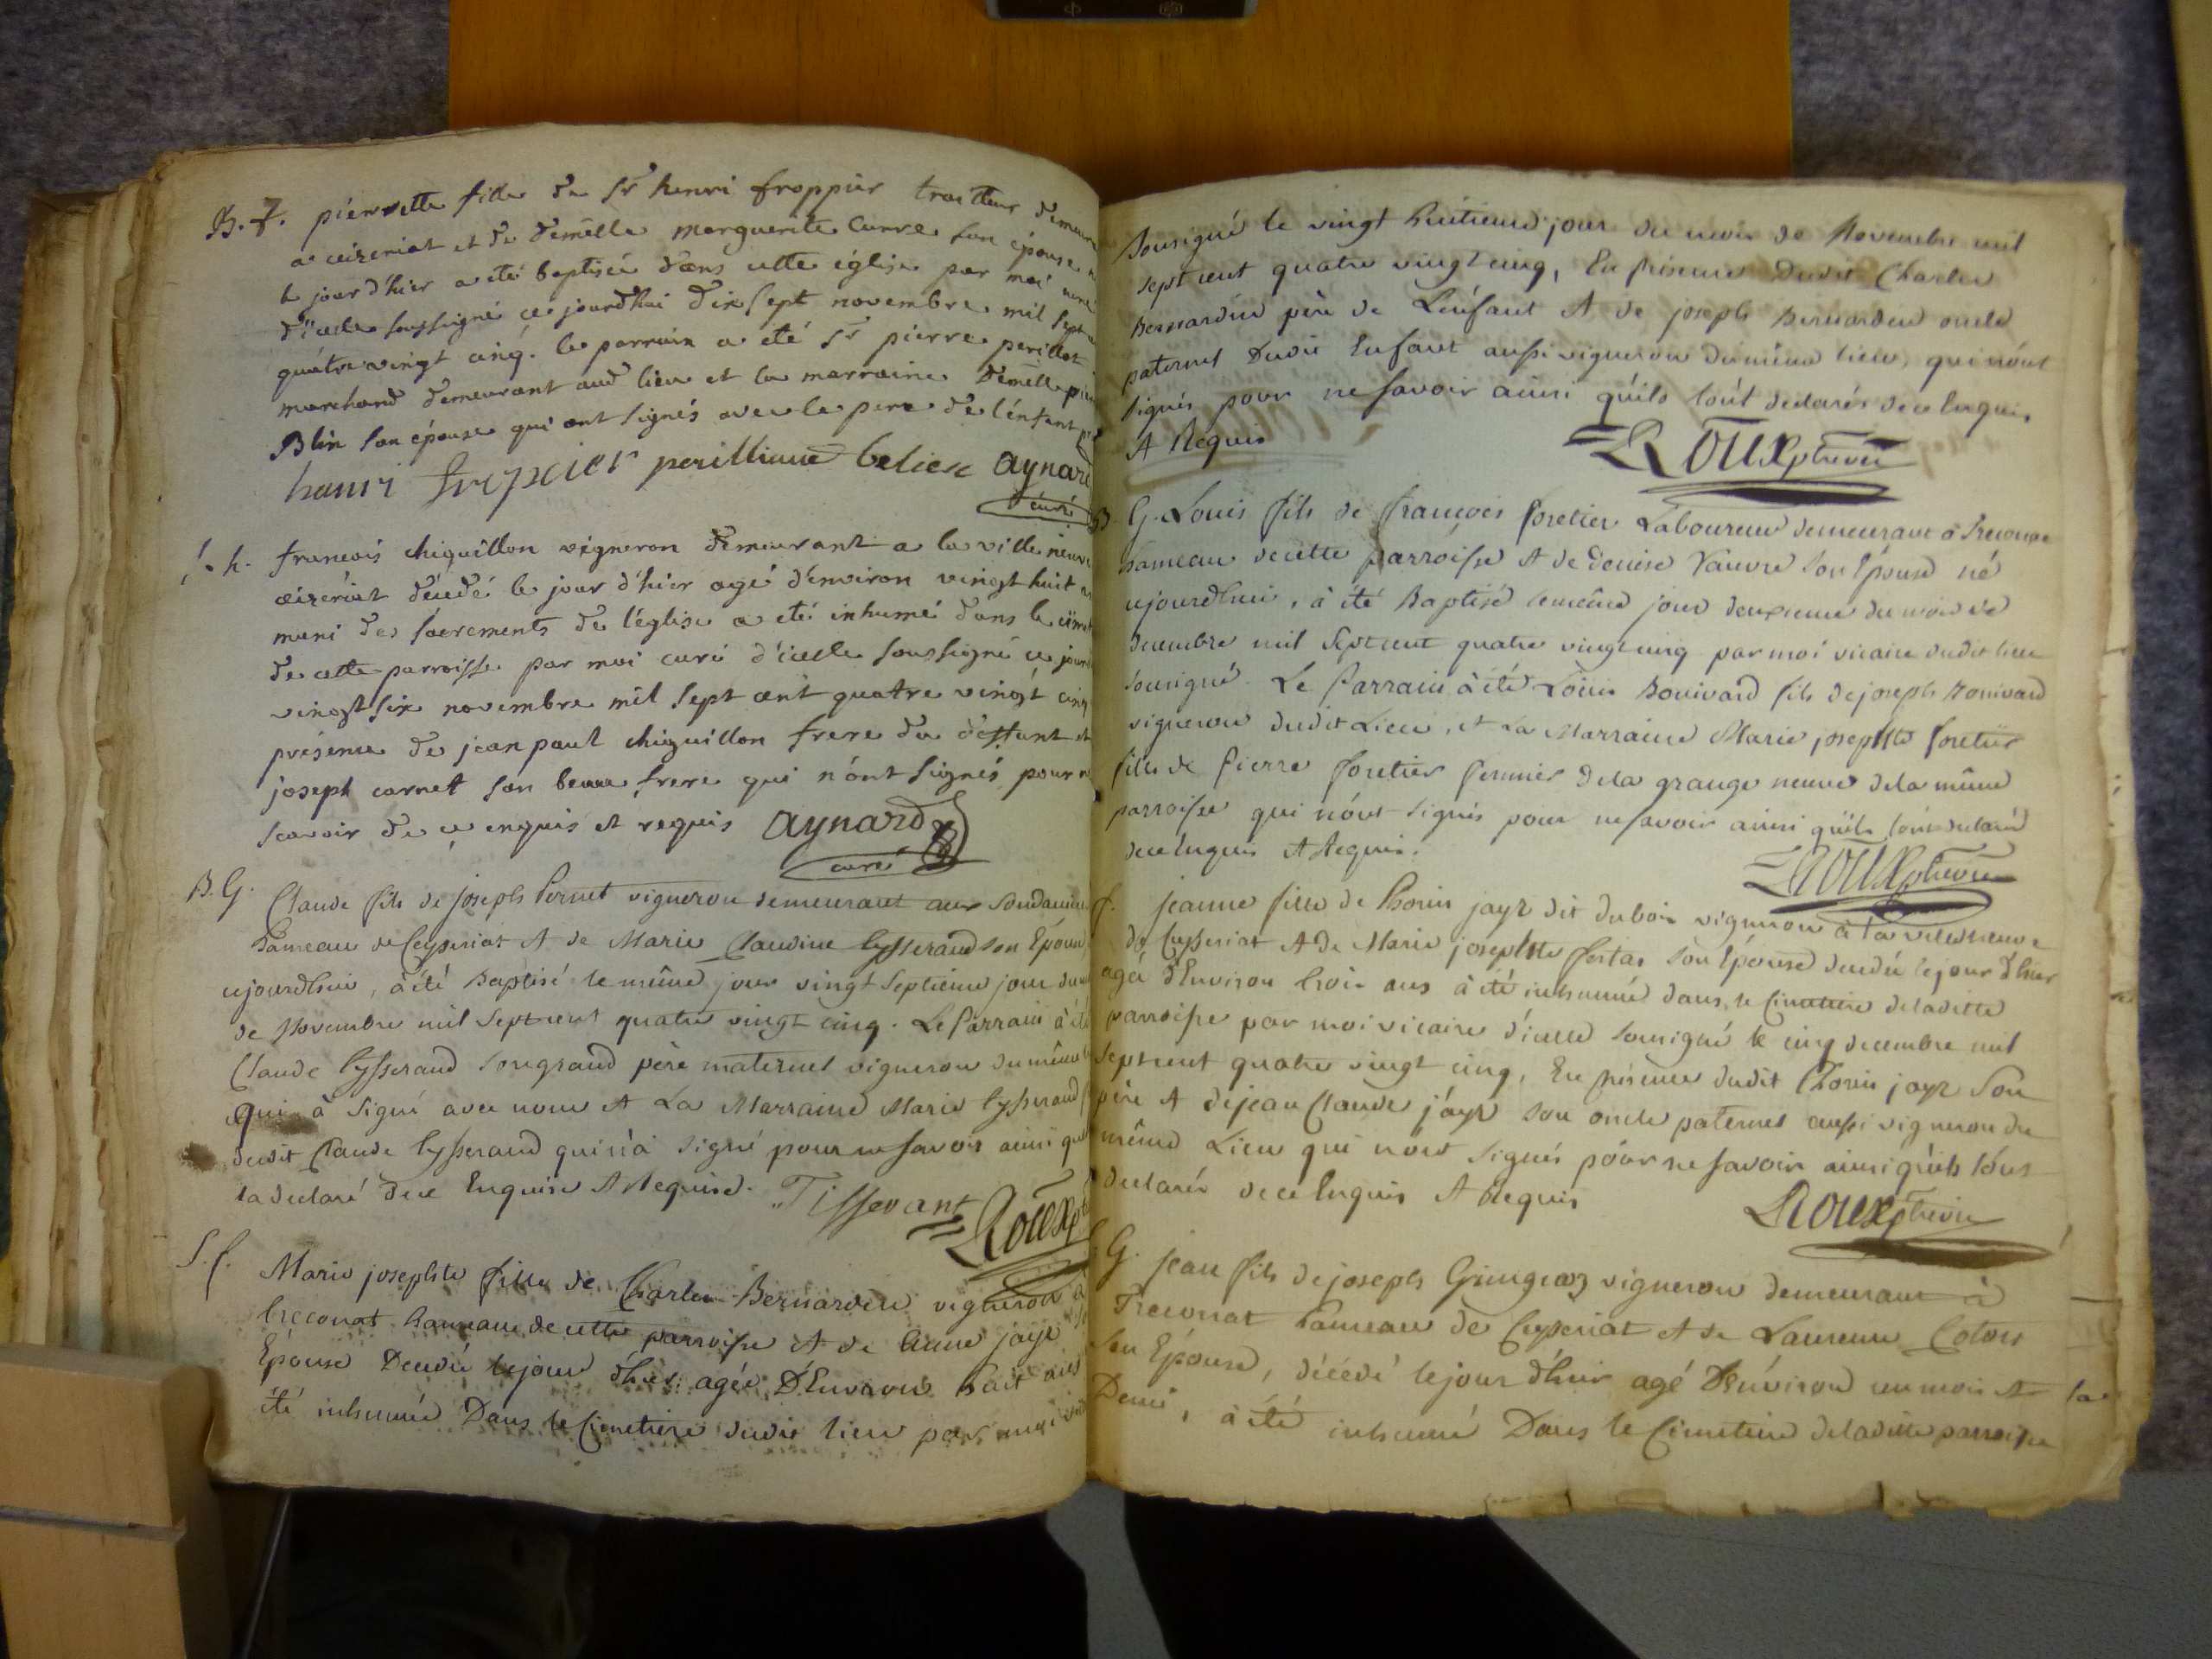 B. f. pierrette fille de Sr henri froppier traitteur demeur
a ceizeriat et de demelle marguerite Carre son épouse
le jour d'hier a été baptisée dans cette église par moi curé
d'icelle soussigné ce jourdhui dix sept novembre mil sept
quatre vingt cinq. le parrain a été Sr pierre perillat
marchand demeurant aud lieu et la marraine Demelle
Blin son épouse qui ont signés avec le pere de l'énfant
henri aynard
curé
S. h. francois chiquillon vigneron demeurant a la ville neuve
ceizériat décédé le jour d'hier agé d'environ vingt huit
muni des sacrements de l'église a eté inhumé dans le cimet
de cette parroisse par moi curé d'icelle soussigné ce jourd
vingt six novembre mil sept cent quatre vingt cinq
présence de jean paul chiquillon frere du deffunt et
joseph carnet son beau frere qui n'ont signés pour ne
scavoir de ce enquis et requis aynard
curé
B. G. Claude fils de joseph Pernet vigneron demeurant aux
hameau de Ceyseriat et de Marie Claudine tysserand son Epouse
cejourdhui, à été baptisé le même jour vingt septieme jour du
de Novembre mil sept cent quatre vingt cinq. Le Parrain à été
Claude tysserand son grand père maternel vigneron du même
qui à signé avec nous et La Marraine Marie tysserand
dudit Claude tysserand qui n'à signé pour ne savoir ainsi quel
la declaré de ce Enquise et Requise. Tisserant
Roux
S. f. Marie josephte fille de Charles Bernardin vigneron à
treconat hameau de cette parroisse et de Anne jayr
Epouse Decedée le jour d'hier agée D'Environ huit ans
été inhumée Dans le Cimetiere dudit lieu par moi
sousigné le vingt huitieme jour du mois de Novembre mil
sept cent quatre vingt cinq, En présence Dudit Charles
Bernardin père de L'enfant et de joseph Bernardin oncle
paternel Dudit Enfant aussi vigneron du même lieu, qui n'ont
signés pour ne savoir ainsi qu'ils l'ont declarés de ce Enquis
et Requis
Roux ptre vire
B G. Louis fils de francois foretier Laboureur demeurant à
hameau de cette parroisse et de Denise Vauvre son Epouse né
cejourdhui, à été Baptisé le même jour deuxieme du mois de
decembre mil sept cent quatre vingt cinq par moi vicaire dudit lieu
sousigné. Le Parrain à été Louis Bonivard fils de joseph Bonivard
vigneron dudit Lieu, et La Marraine Marie josephte foretier
fille de Pierre foretier fermier de la grange neuve de la même
parroisse qui n'ont signés pour ne savoir ainsi qu'ils l'ont declaré
de ce Enquis et Requis.
Roux ptre vire
f. jeanne fille de Thorin jayr dit dubois vigneron à la villeneuve
de Ceysseriat et de Marie josephte son Epouse decedée le jour d'hier
agée d'Environ trois ans à été inhumée dans le Cimetiere de laditte
parroisse par moi vicaire d'icelle sousigné le cinq decembre mil
sept cent quatre vingt cinq, En présence dudit Thorin jayr son
père et de jean Claude jayr son oncle paternel aussi vigneron du
même Lieu qui n'ont signés pour ne savoir ainsi qu'ils l'ont
declarés de ce Enquis et Requis
Roux ptre vire
G. jean fils de joseph vigneron demeurant à
Treconat hameau de Ceyseriat et de Laurence
son Epouse, décédé le jour d'hier agé D'environ un mois et
Demi, à été inhumé Dans le Cimetiere de laditte parroisse